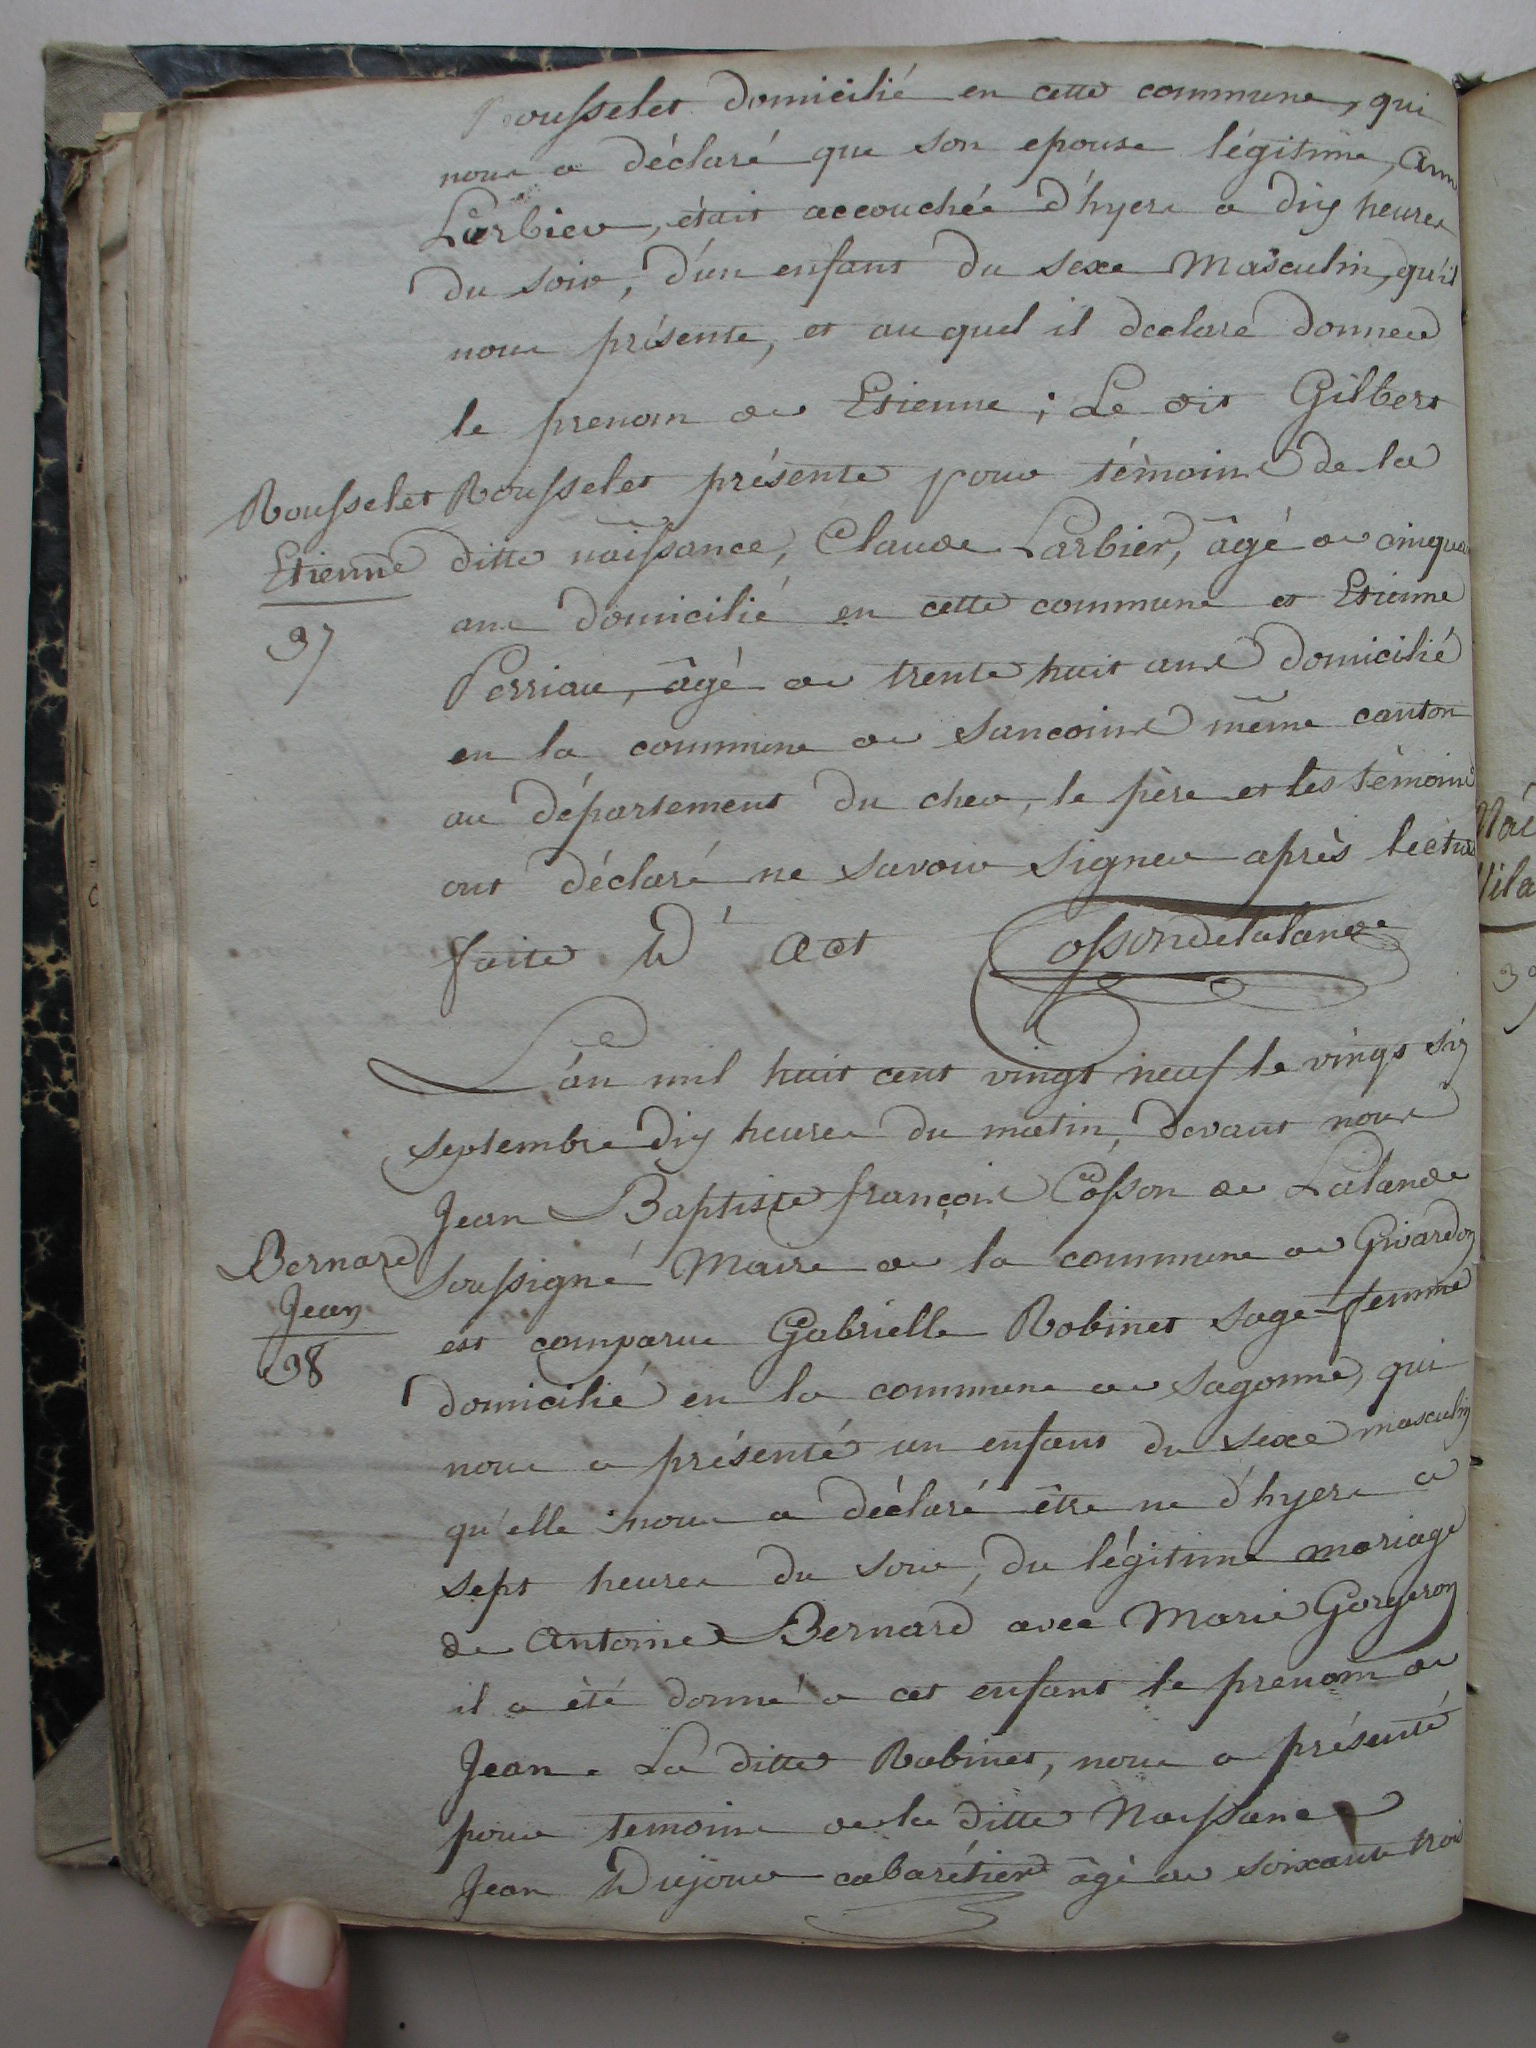 Rousselet domicilié en cette commune, qui
nous a déclaré que son epouse légitime, Ann
Larbier, était accouchée d'hyers a dix heures
du soir, d'un enfant du sexe Masculin, qu'il
nous présente, et au quel il declaré donner
le prenom de Etienne ; Le dit Gilbert
Rousselet présente pour témoins de la
Rousselet
Etienne
37
ditte naissance, Claude Larbier, âgé de cinquan
ans domicilié en cette commune et Etienne
Perriau, âgé de trente huit ans domicilié
en la commune de Sancoins même canton
au département du cher, le père et les témoins
ont déclaré ne savoir signer après lecture
faite D' Act Cossondelalande
L'an mil huit cent vingt neuf le vingt six
septembre dix heures du matin, devant nous
Jean Baptiste françois Cosson de Lalande
Bernard
Jean
38
Soussigné Maire de la commune de Givardon
est comparue Gabrielle Robinet sage femme
domicilié en la commune de Sagonne, qui
nous a présenté un enfant du sexe masculin
qu'elle nous a déclaré être ne d'hyers a
sept heures du soir, du légitime mariage
de Antoine Bernard avec Marie Gorgeron
il a été donné a cet enfant le prenom de
Jean. La ditte Robinet, nous a présenté
pour temoins de la ditte Naissance
Jean Dujour cabarétier âgé de soixante trois
Nai
39